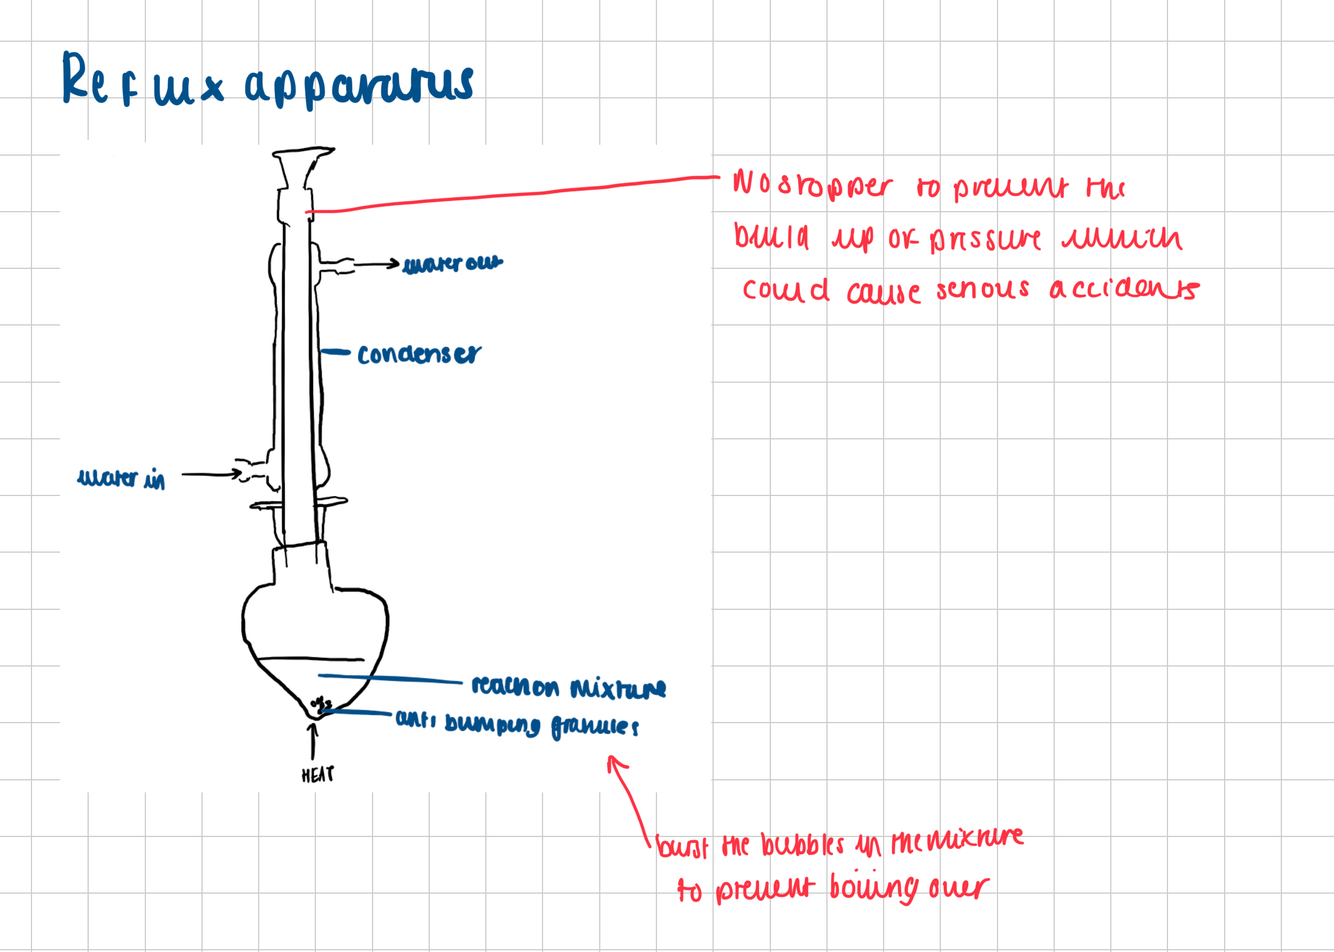 Reflux apparatus
No stopper to prevent the
build up of pressure which
could cause serious accidents
water out
condenser
water in
reaction mixture
anti bumping granules
HEAT
burst the bubbles in the mixture
to prevent boiling over